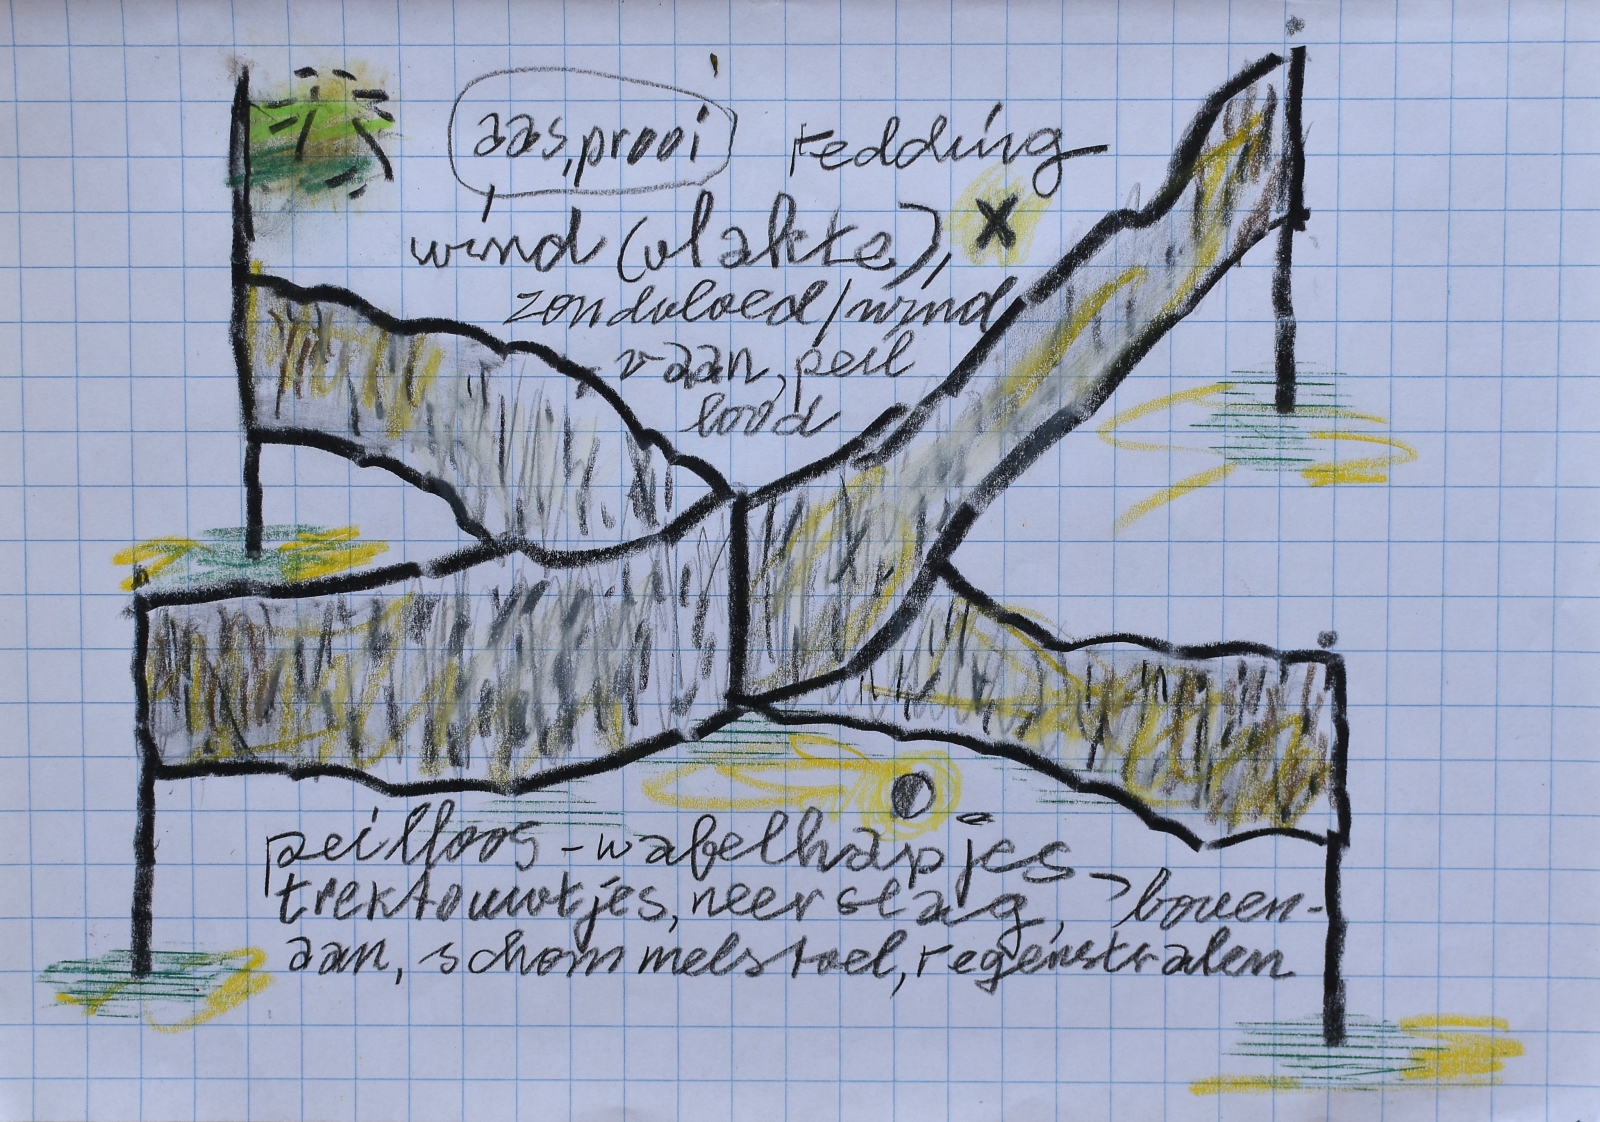 aas, prooi redding
wind (vlakte), x
zondvloed/wind
vaan, peil
lood
peilloos - wafelhapjes
trektouwtjes, neerslag, > boven-
aan, schommelstoel, regenstralen